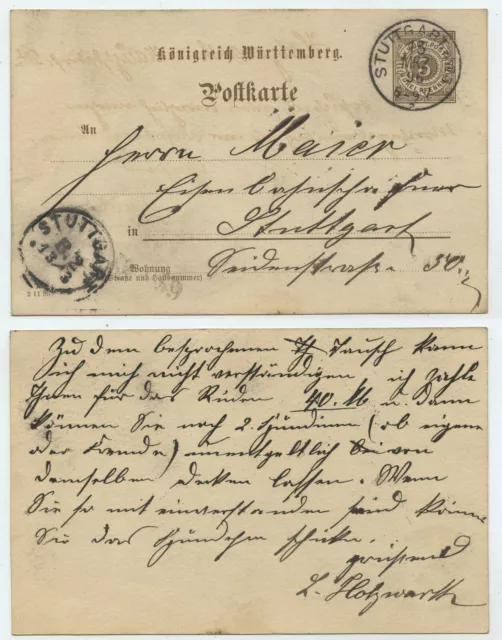 Königreich Württemberg.
Postkarte
STUTTGART
3
An
Herrn Maier
Eisenbahnschaffner
in Stuttgart
STUTTGART
Wohnung
(Straße und Hausnummer)
Seidenstraße 30.
Zu dem besprochenen Tausch kann
ich mich nicht verständigen ich zahle
Ihnen für das Rüden 40. M u. dann
können Sie noch 2. Hündinen (ob eigene
oder Fremde) unentgeltlich bei von
demselben deken lassen. Wenn
Sie so mit einverstanden sind könne
Sie das Hündchen schicken.
grüssend
L. Holzwarth